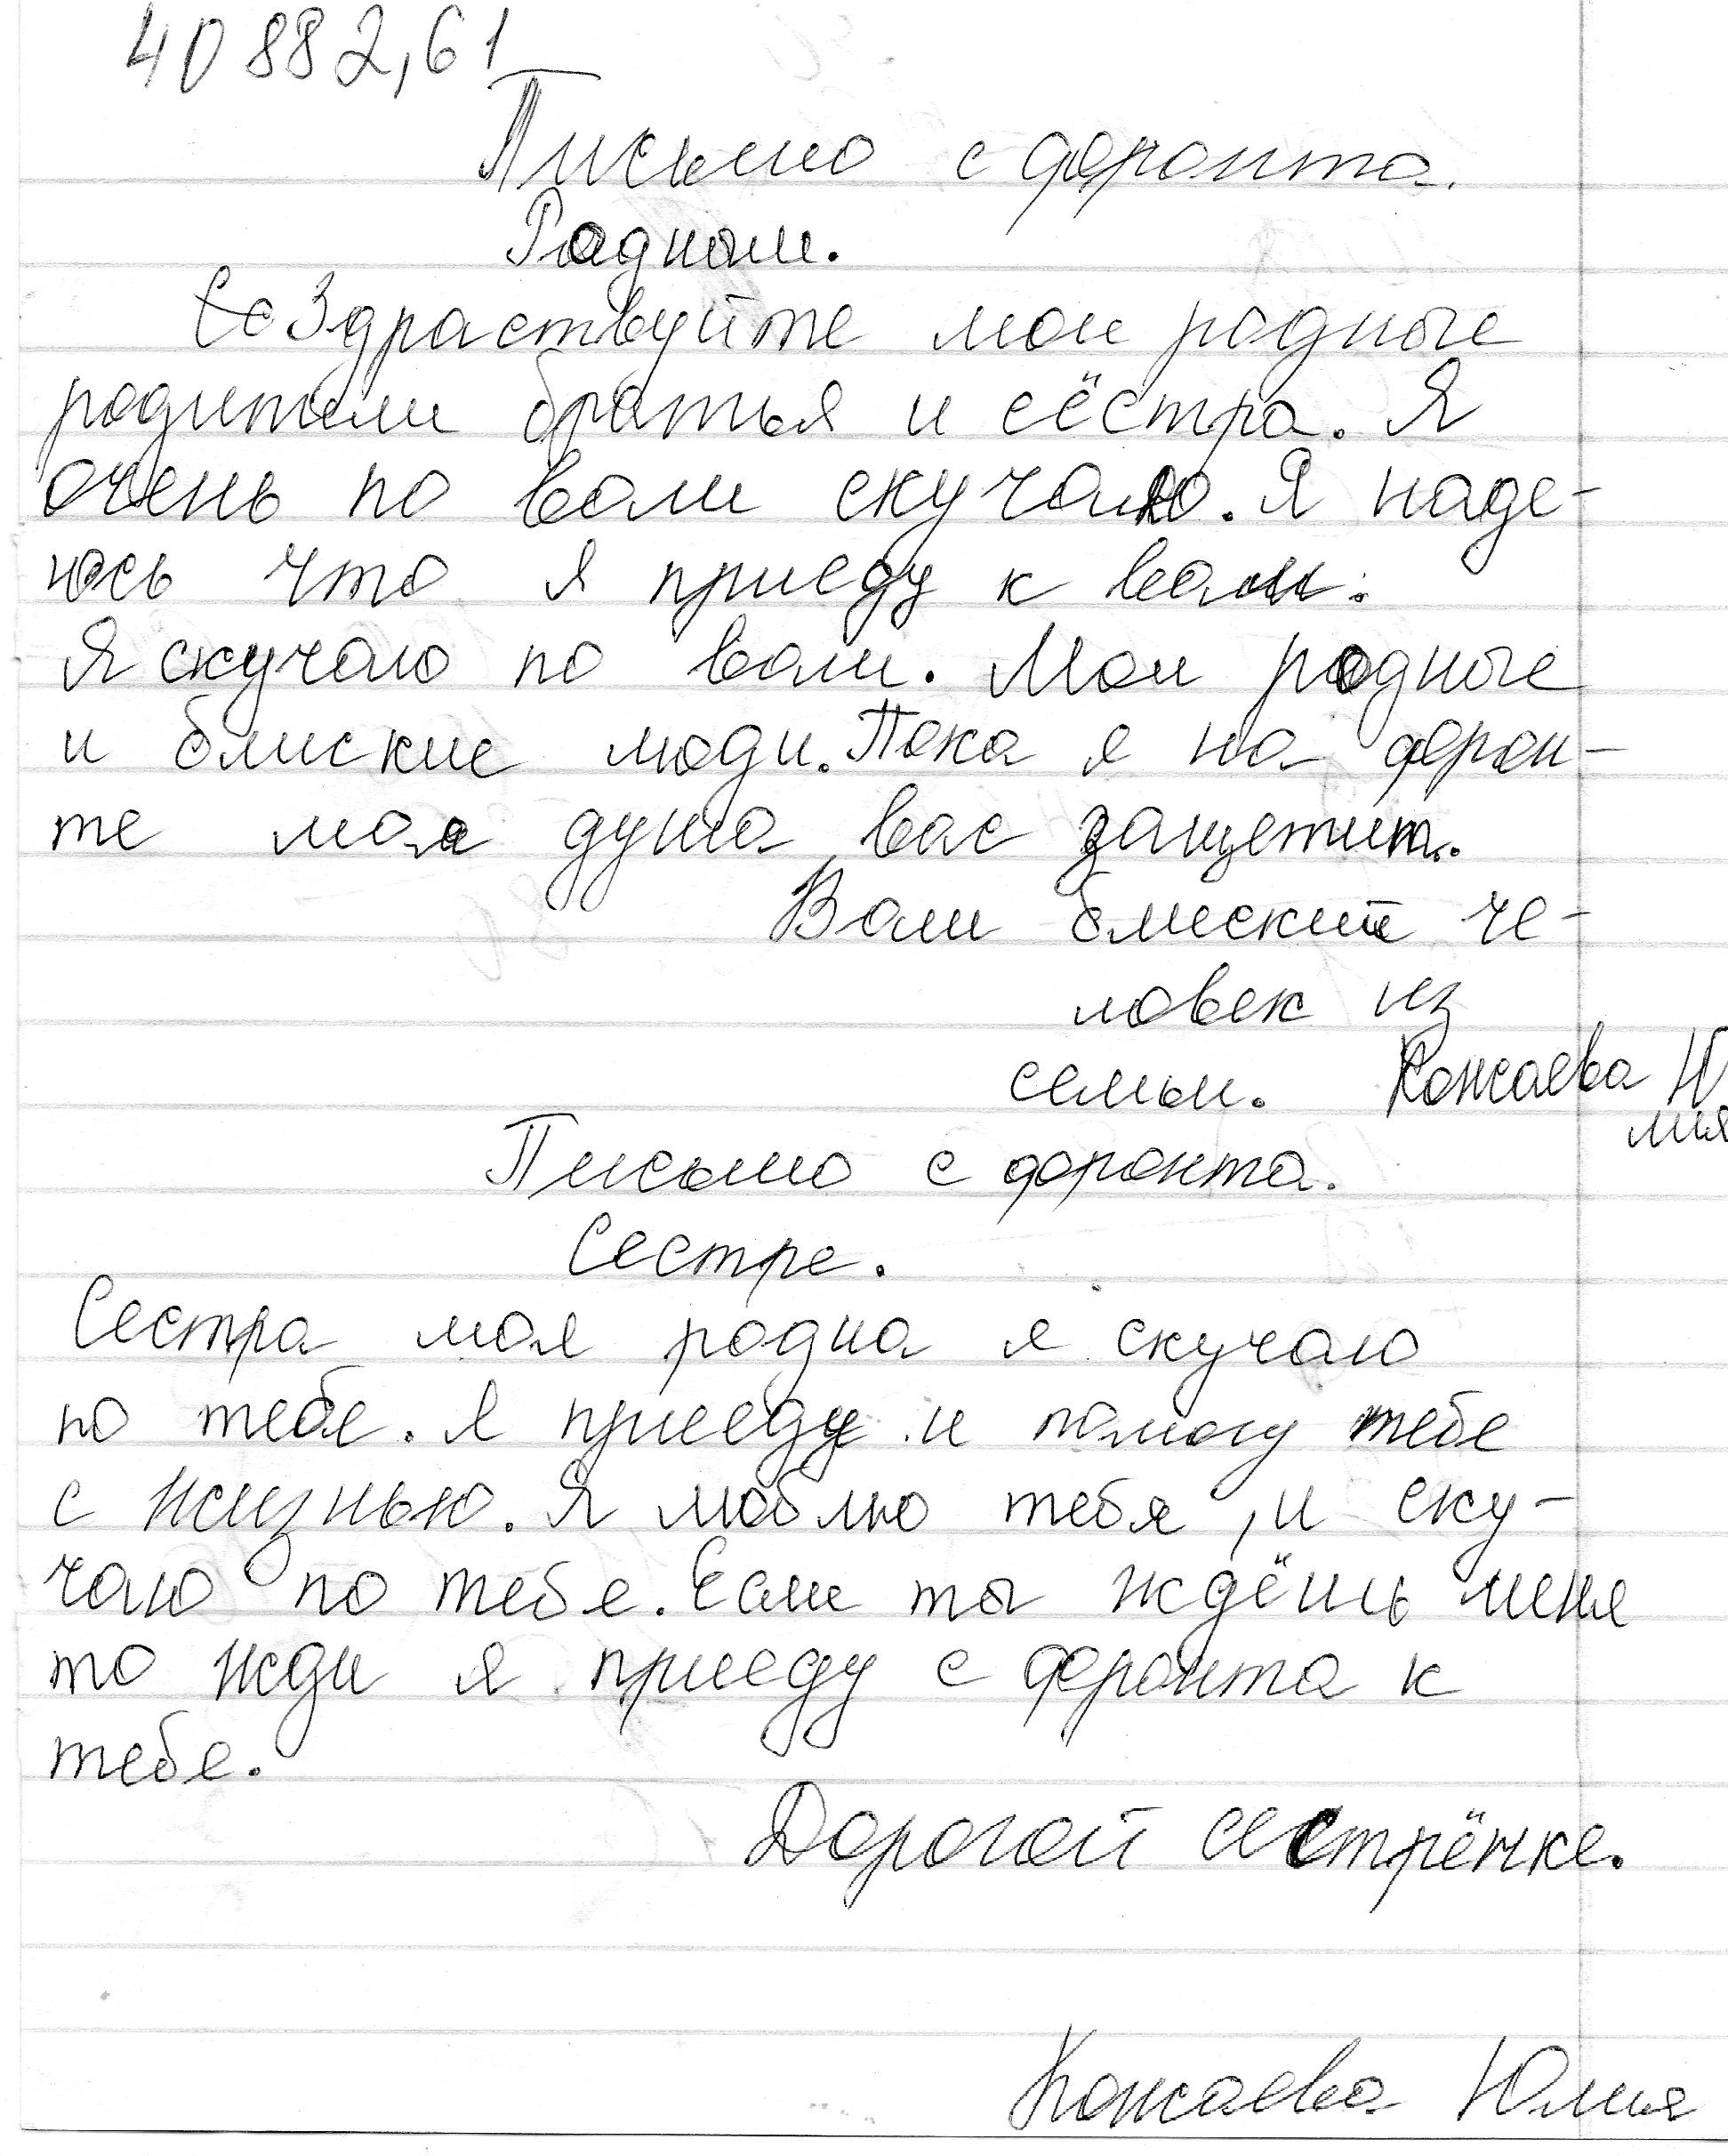 40882,61
Письмо с фронта.
Родным.
Здраствуйте мои родные
родители братья и сёстра. Я
очень по вам скучаю. Я наде-
юсь что я приеду к вам.
Я скучаю по вам. Мои родные
и блиские люди. Пока я на фрон-
те моя душа вас защетит.
Ваш блиский че-
ловек из
семьи. Кожаева Ю
лия
Письмо с фронта.
Сестре.
Сестра моя родна я скучаю
по тебе. Я прееду и помогу тебе
с жизнью. Я люблю тебя, и ску-
чаю по тебе. Если ты ждёшь меня
то жди я прееду с фронта к
тебе.
Дорогой сестрёнке.
Кожаева Юлия